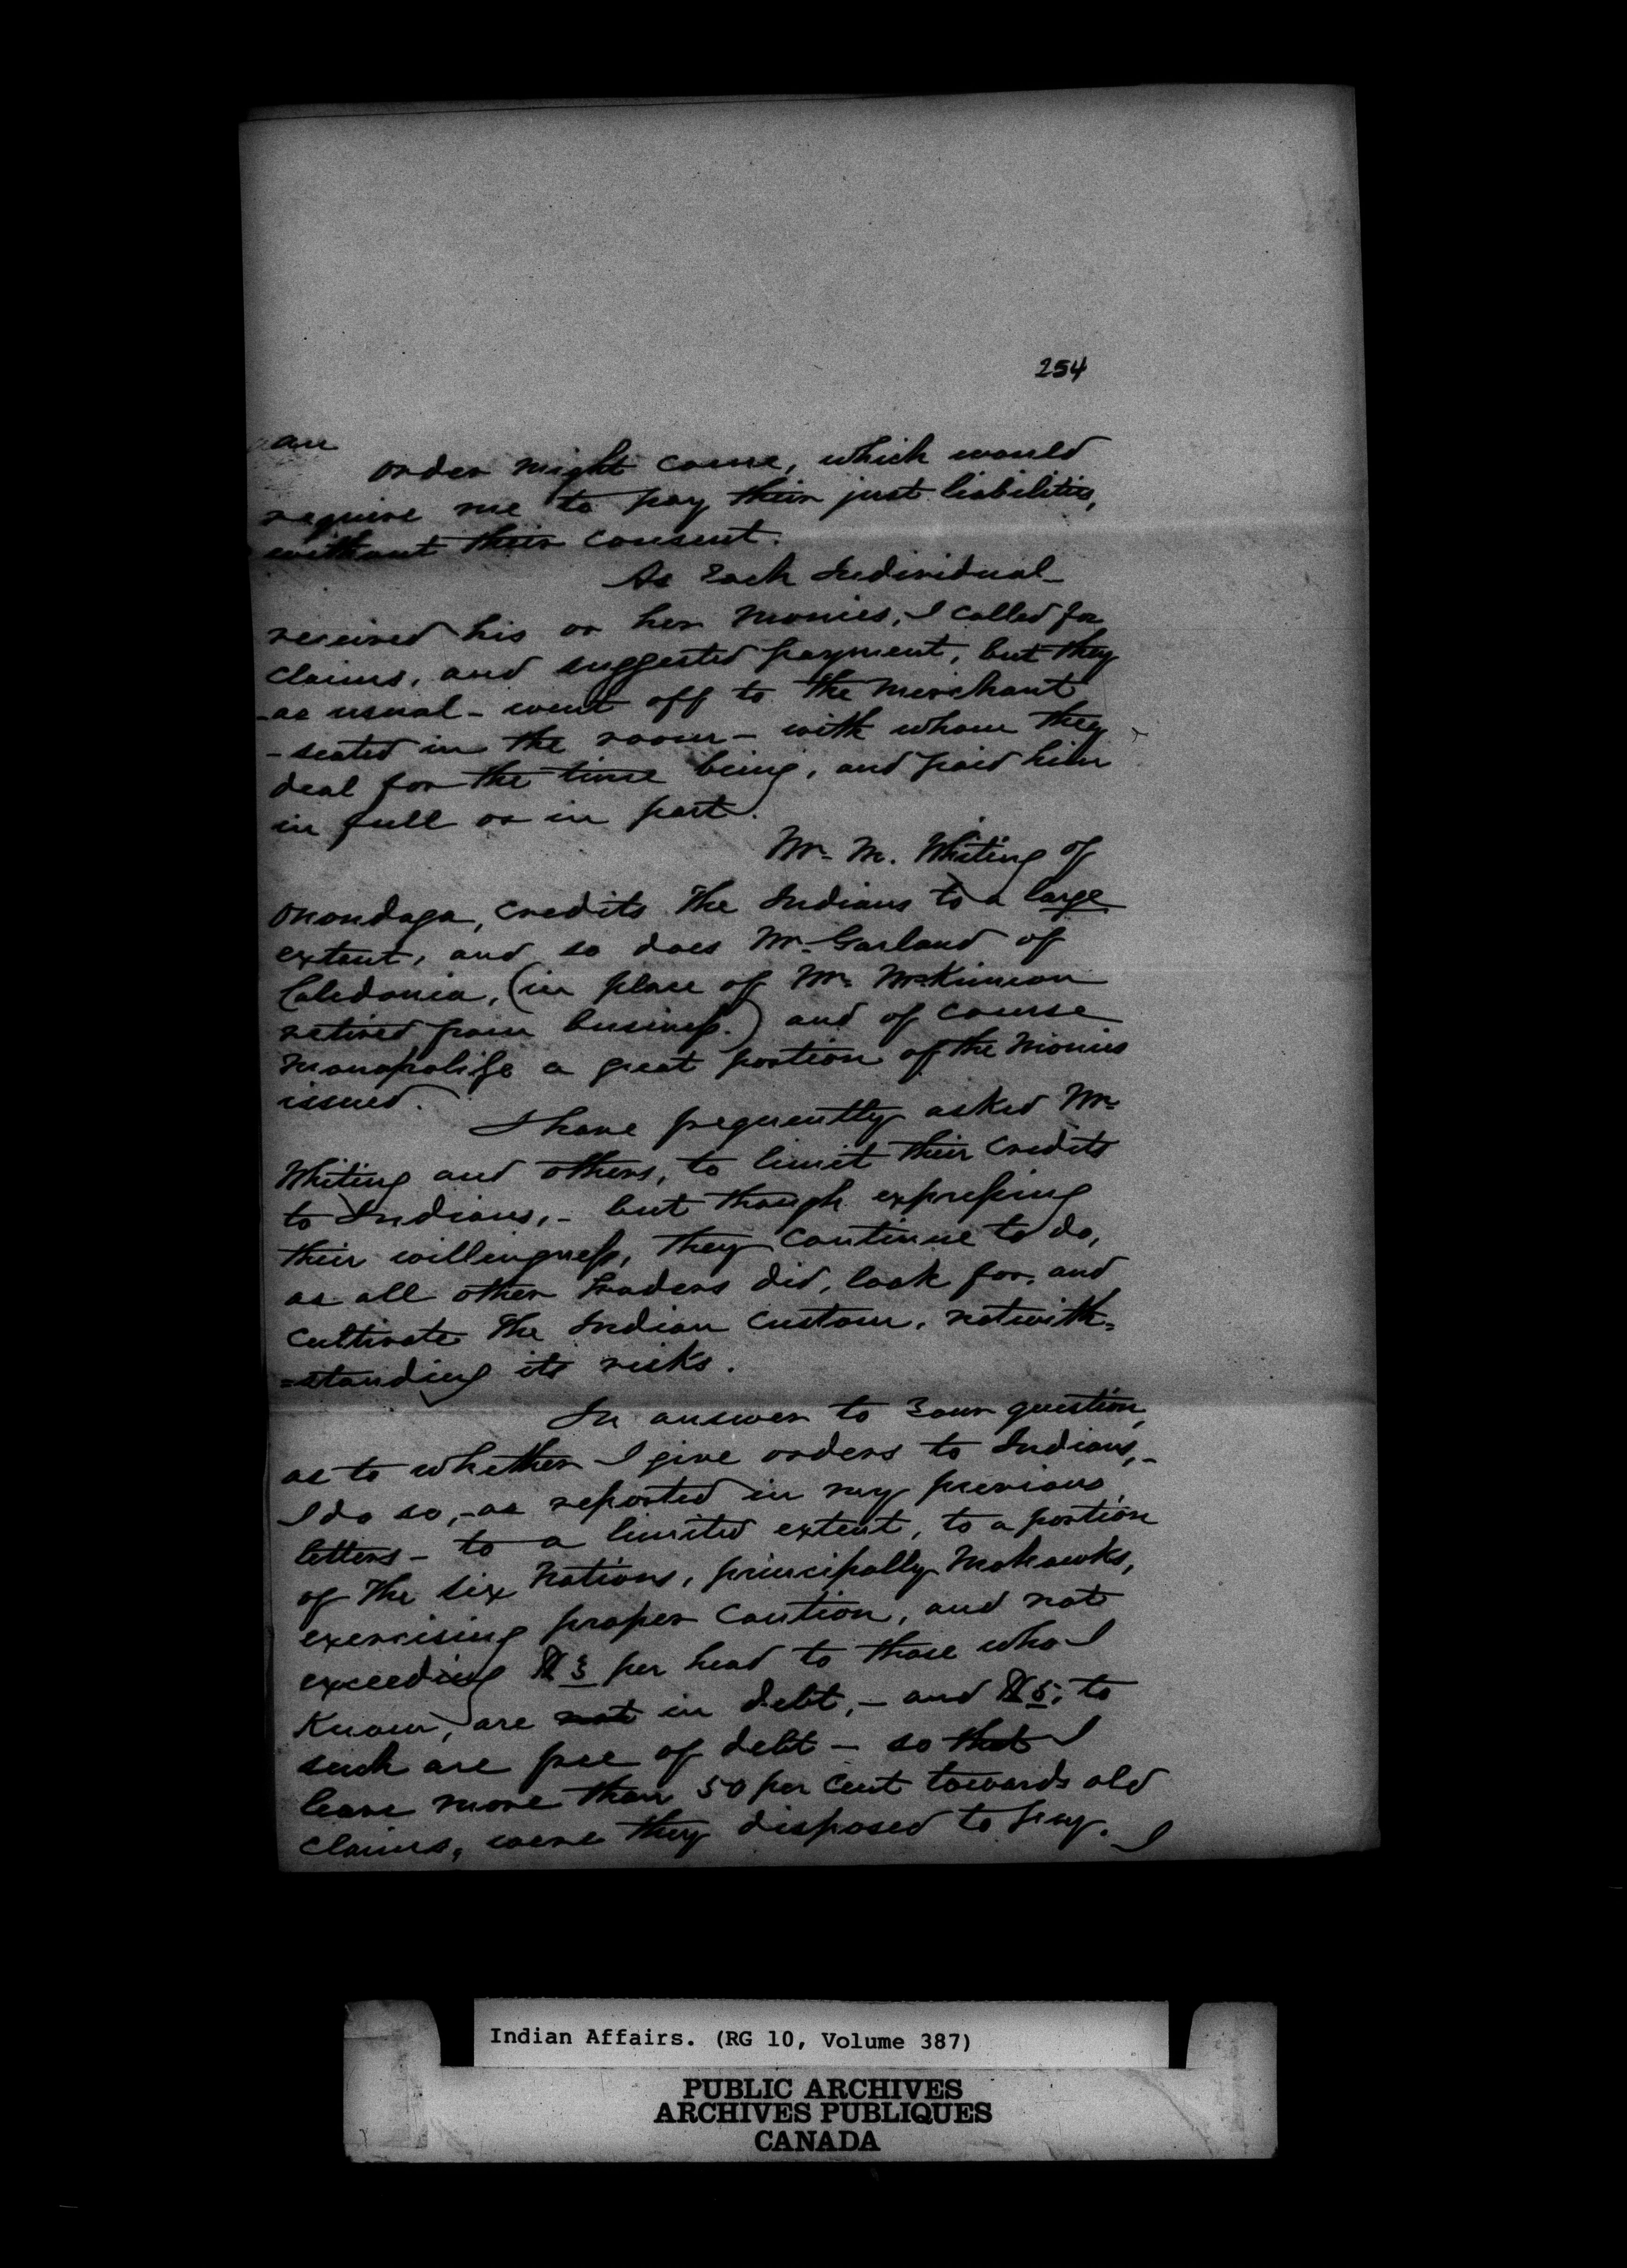 254
an
order might come, which would
require me to pay their just liabilities,
without their consent.
As Each Individual
received his or her monies, I called for
claims, and suggested payment, but they
-as usual- went off to the merchant
-seated in the room- with whom they
deal for the time being, and paid him
in full or in part.
Mr. M. Whiting of
Onondaga, credits the Indians to a large
extent, and so does Mr. Garland of
Caledonia, (in place of Mr. McKinnon
retired from business.) and of course
monopolise a great portion of the monies
issued.
I have frequently asked Mr.
Whiting and others, to limit their credits
to Indians,- but though expressing
their willingness, they continue to do,
as all other traders did, look for, and
cultivate the Indian custom, notwith=
=standing its risks.
In answer to Your question,
as to whether I give orders to Indians,-
I do so,-as reported in my previous
letters- to a limited extent, to a portion
of the Six Nations, principally Mohawks,
exercising proper caution, and not
exceeding $3 per head to those who I
Know, are not in debt,- and $5, to
such are free of debt- so that I
leave more than 50 per cent towards old
claims, were they disposed to pay. I
Indian Affairs. (RG 10, Volume 387)
PUBLIC ARCHIVES
ARCHIVES PUBLIQUES
CANADA